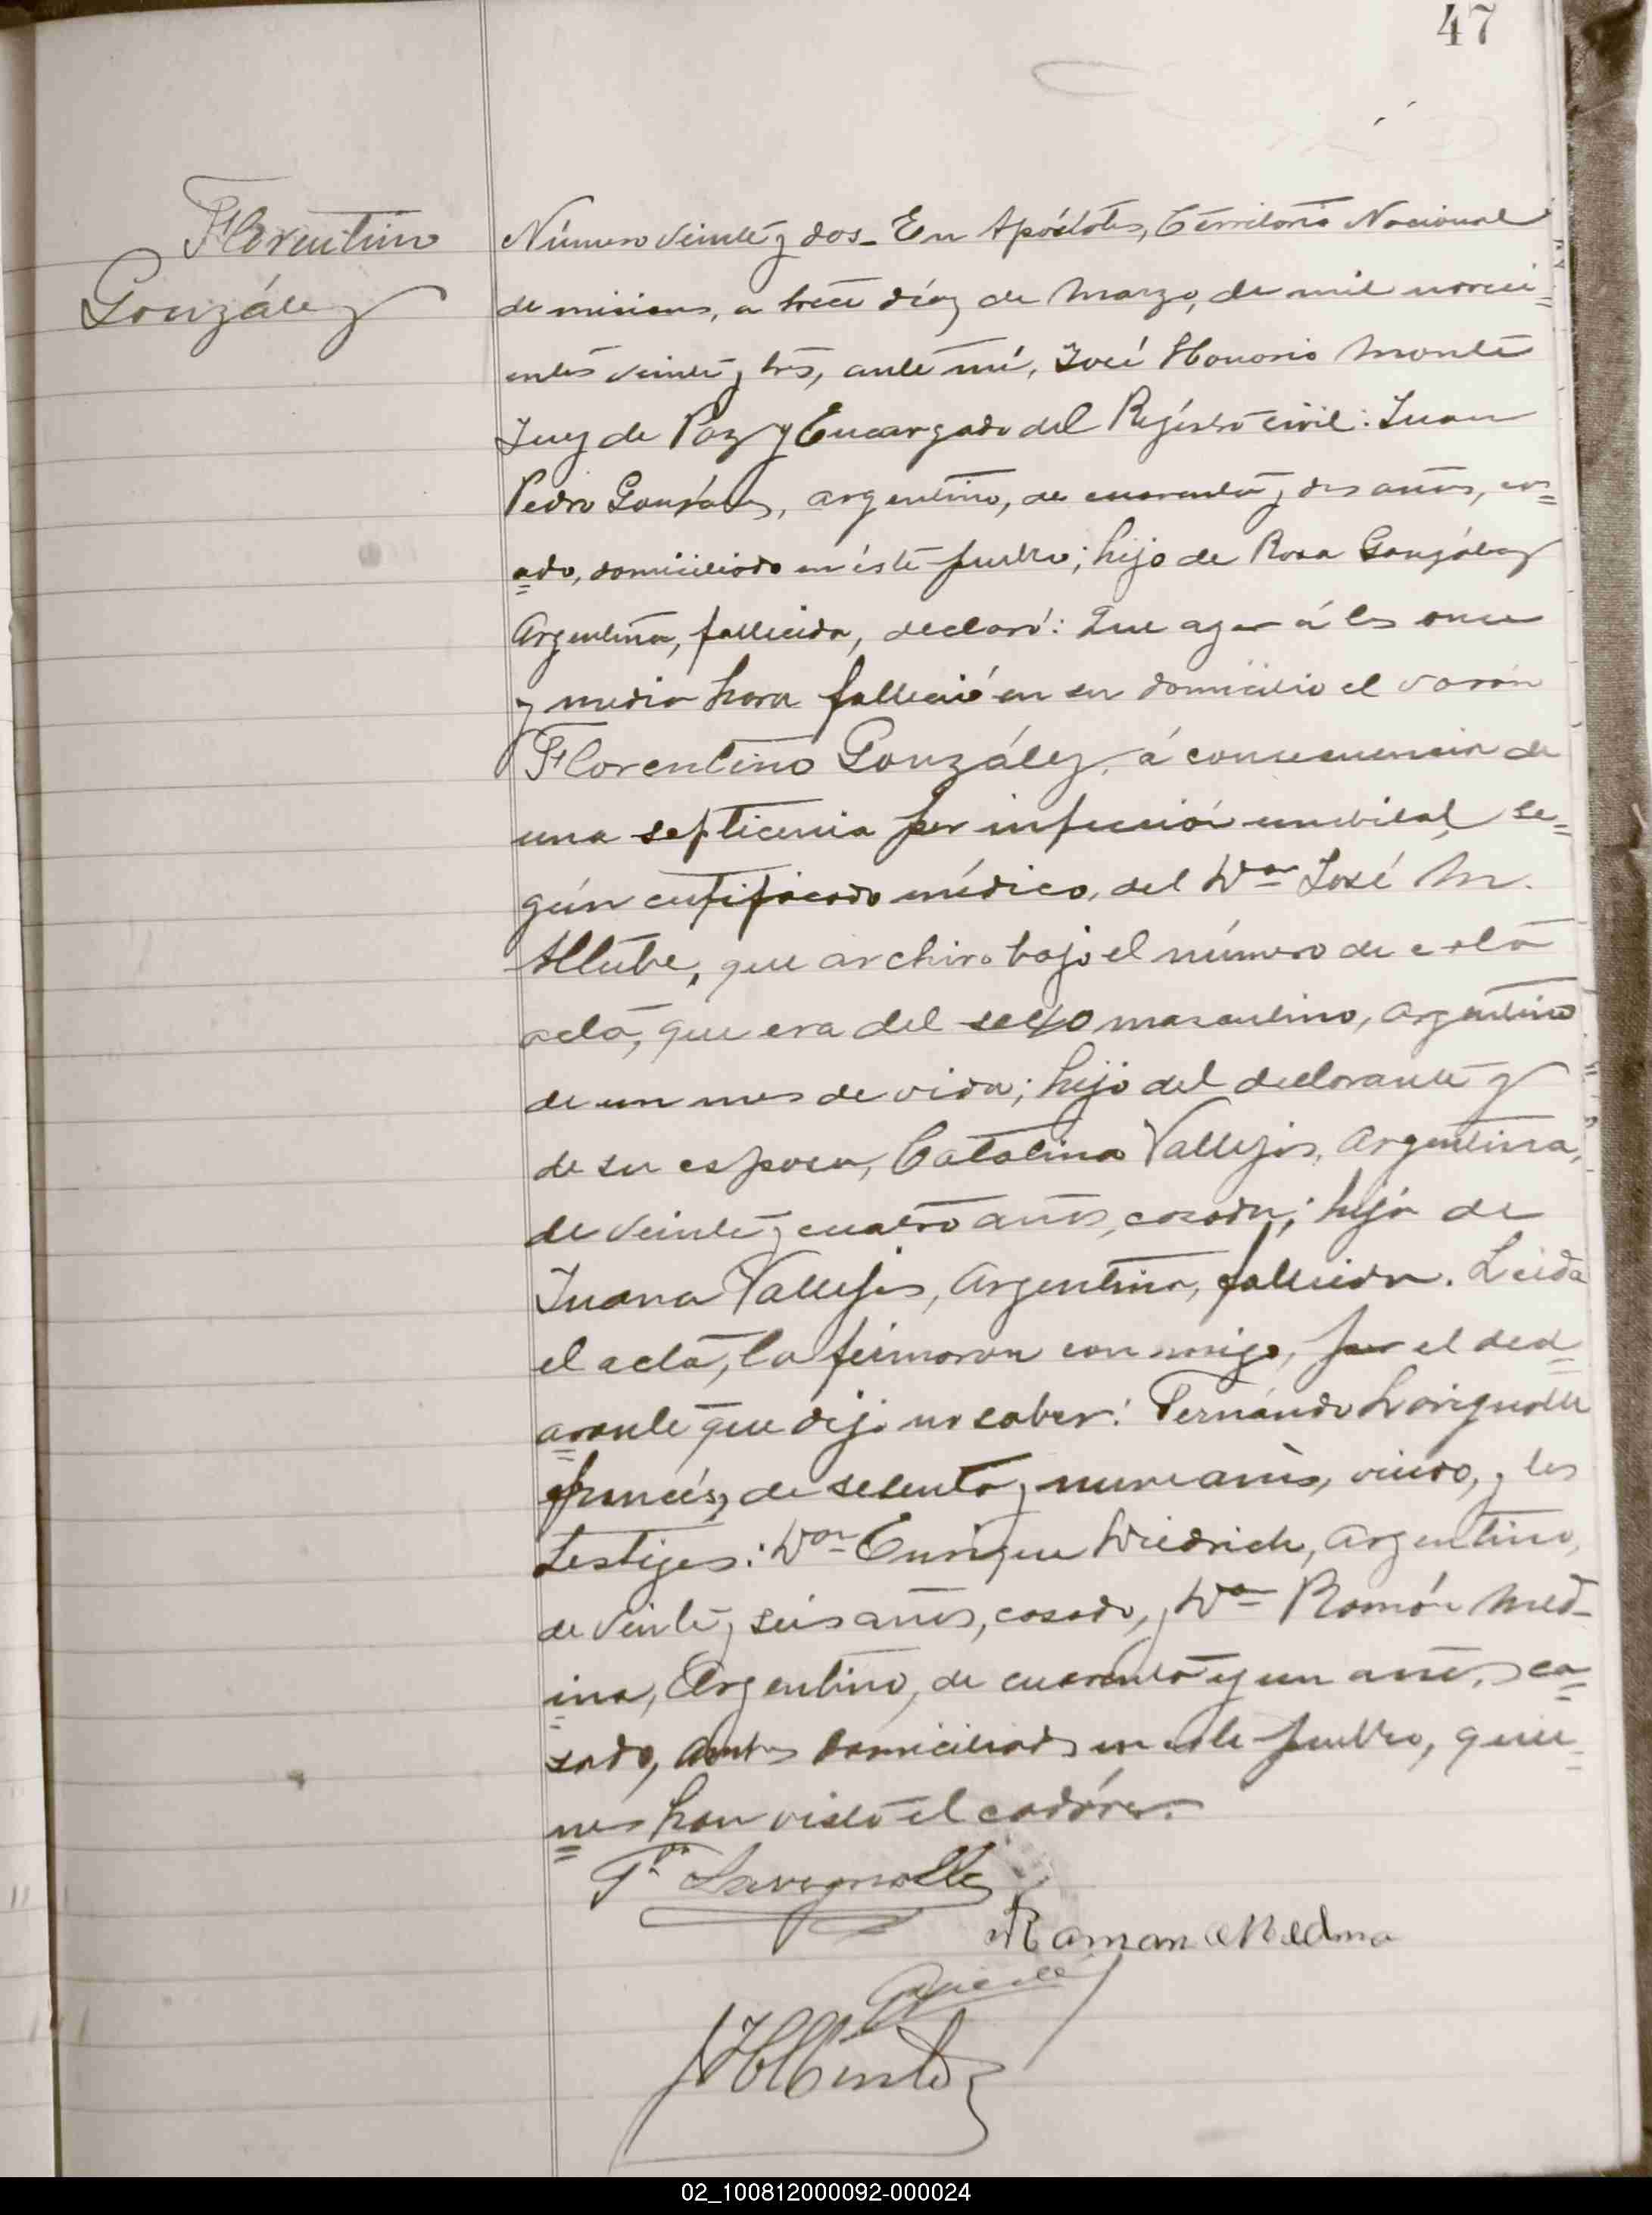 47
Florentino
González
Número veinte y dos_ En Apóstoles, Territorio Nacional
de misiones, a trece días de Marzo, de mil noveci=
entos veinte y tres, ante mí, José Honorio Monte
Juez de Paz y Encargado del Registro civil: Juan
Pedro González, argentino, de cuarenta y dos años, cas=
ado, domiciliado en éste pueblo; hijo de Rosa González
Argentina, fallecida, declaró: Que ayer á las once
y media hora falleció en su domicilio el varón
Florentino González, á consecuencia de
una septicemia por infección umbilical, se=
gún certificado médico, del Dor José M.
que archivo bajo el número de esta
acta, que era del sexo masculino, argentino
de un mes de vida; hijo del declarante y
de su esposa, Catalina Vallejos, argentina,
de veinte y cuatro años, casada; hija de
Juana Vallejos, Argentina, fallecida. Leída
el acta, la firmaron con migo, por el decl=
arante que dijo no saber: Fernándo Lavignolle
francés, de sesenta y nueve años, viudo, y los
testigos: Don Enrique Diedrich, argentino,
de veinte y seis años, casado, y Dn Ramón Med-
ina, Argentino, de cuarenta y un años, ca=
sado, ambos domiciliados en este pueblo, quie=
nes han visto el cadáver.
F. Lavignolle
Ramon Medina